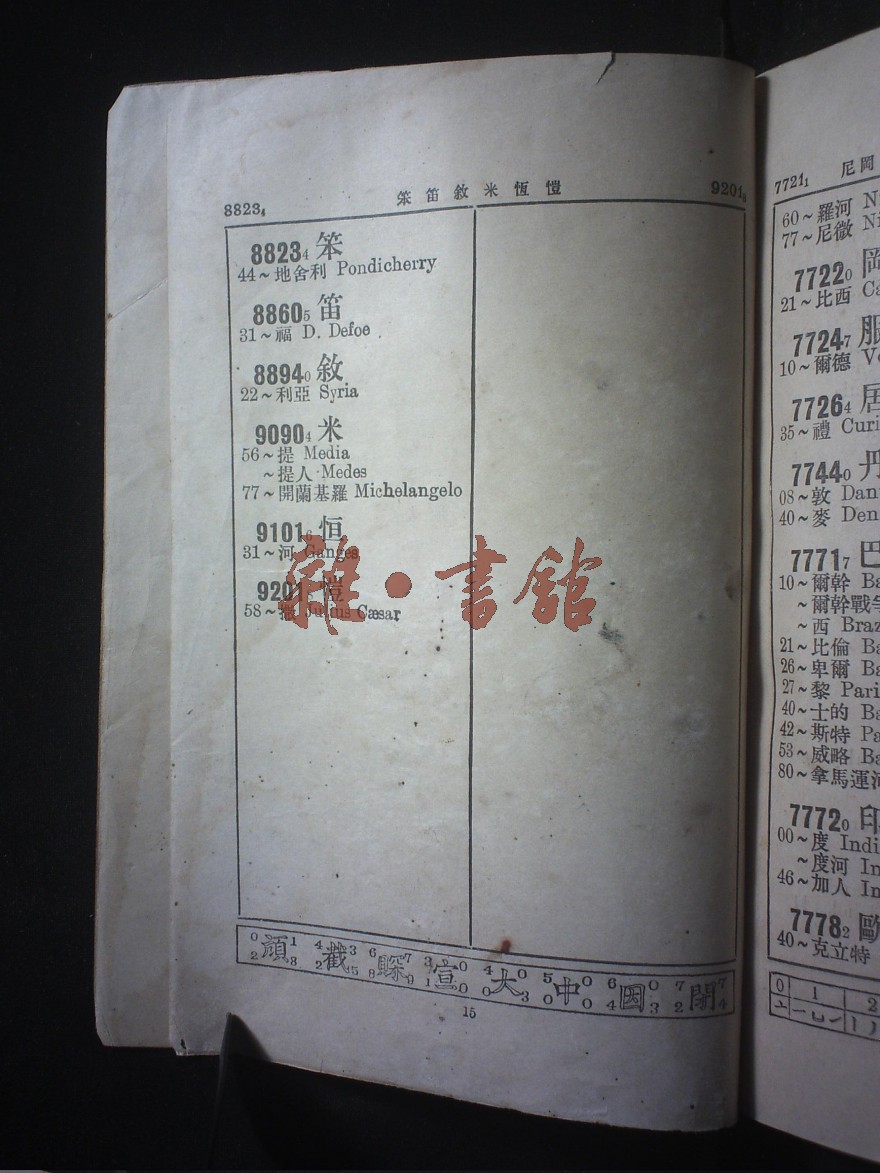 8823₄ 笨笛敘米恆愷 9201₈
8823₄ 笨
44～地舍利 Pondicherry
8860₅ 笛
31～福 D. Defoe
8894₀ 敘
22～利亞 Syria
9090₄ 米
56～提 Media
～提人 Medes
77～開蘭基羅 Michelangelo
9101₆ 恒
31～河 Ganges
9201₈ 愷
58～撒 Julius Cæsar
雜·書館
15
7721₁ 尼岡
60～羅河
77～尼微
7722₀ 岡
21～比西
7724₇ 服
10～爾德
7726₄ 居
35～禮 Curi
7744₀ 丹
08～敦 Dan
40～麥 Den
7771₇ 巴
10～爾幹 Ba
～爾幹戰爭
～西 Braz
21～比倫 Ba
26～卑爾 Ba
27～黎 Pari
40～士的 Ba
42～斯特 Pa
53～威略 Ba
80～拿馬運河
7772₀ 印
00～度 Indi
～度河 In
46～加人 In
7778₂ 歐
40～克立特
0 1 2